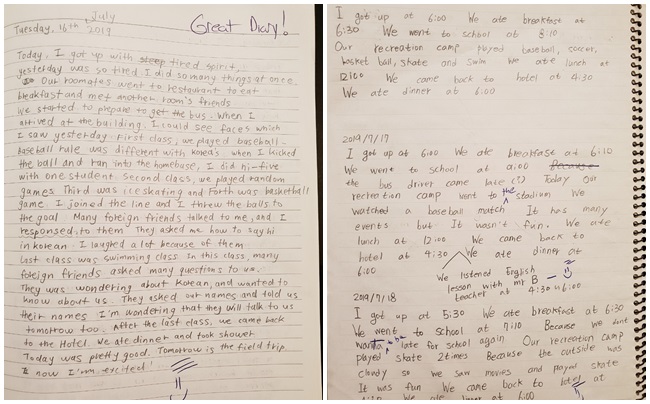 July
Tuesday, 16th 2019
Great Diary!
Today, I got up with tired spirit,
yesterday was so tired I did so many things at once.
So Our roomates went to restaurant to eat
breakfast and met another room's friends
We started to prepare to get the bus. When I
arrived at the building, I could see faces which
I saw yesterday. First class, we played baseball.
Baseball rule was different with Korea's. when I kicked
the ball and ran into the homebase, I did hi-five
with one student. Second class, we played random
games. Third was ice skating and Forth was basketball
game. I joined the line and I threw the balls to
the goal. Many foreign friends talked to me, and I
responsed to them. They asked me how to say hi
in korean. I laughed a lot because of them.
Last class was swimming class. In this class, many
foreign friends asked many questions to us.
They was wondering about Korean, and wanted to
know about us. They asked our names and told us
their names. I'm wondering that they will talk to us
tomorrow too. After the last class, we came back
to the Hotel. We ate dinner and took shower
Today was pretty good. Tomorrow is the field trip.
now I'm excited!
I got up at 6:00 We ate breakfast at
6:30 We went to school at 8:10
Our recreation camp played baseball, soccer,
basket ball, skate and swim We ate lunch at
12:00 We came back to hotel at 4:30
We ate dinner at 6:00
2019/7/17
I got up at 6:00 We ate breakfast at 6:10
We went to school at 9:00 Because
the bus driver came late (!) Today our
recreation camp went to the stadium We
watched a baseball match It has many
events but It wasn't fun. We ate
lunch at 12:00 We came back to
hotel at 4:30 We ate dinner at
6:00
We listened English
lesson with mr B
teacher at 4:30~6:00
2019/7/18
I got up at 5:30 We ate breakfast at 6:30
We went to school at 7:10 Because we dont
wanna be late for school again Our recreation camp
played skate 2times Because the outside was
cloudy so we saw movies and played skate
It was fun We came back to hotel at
We ate dinner at 6:00